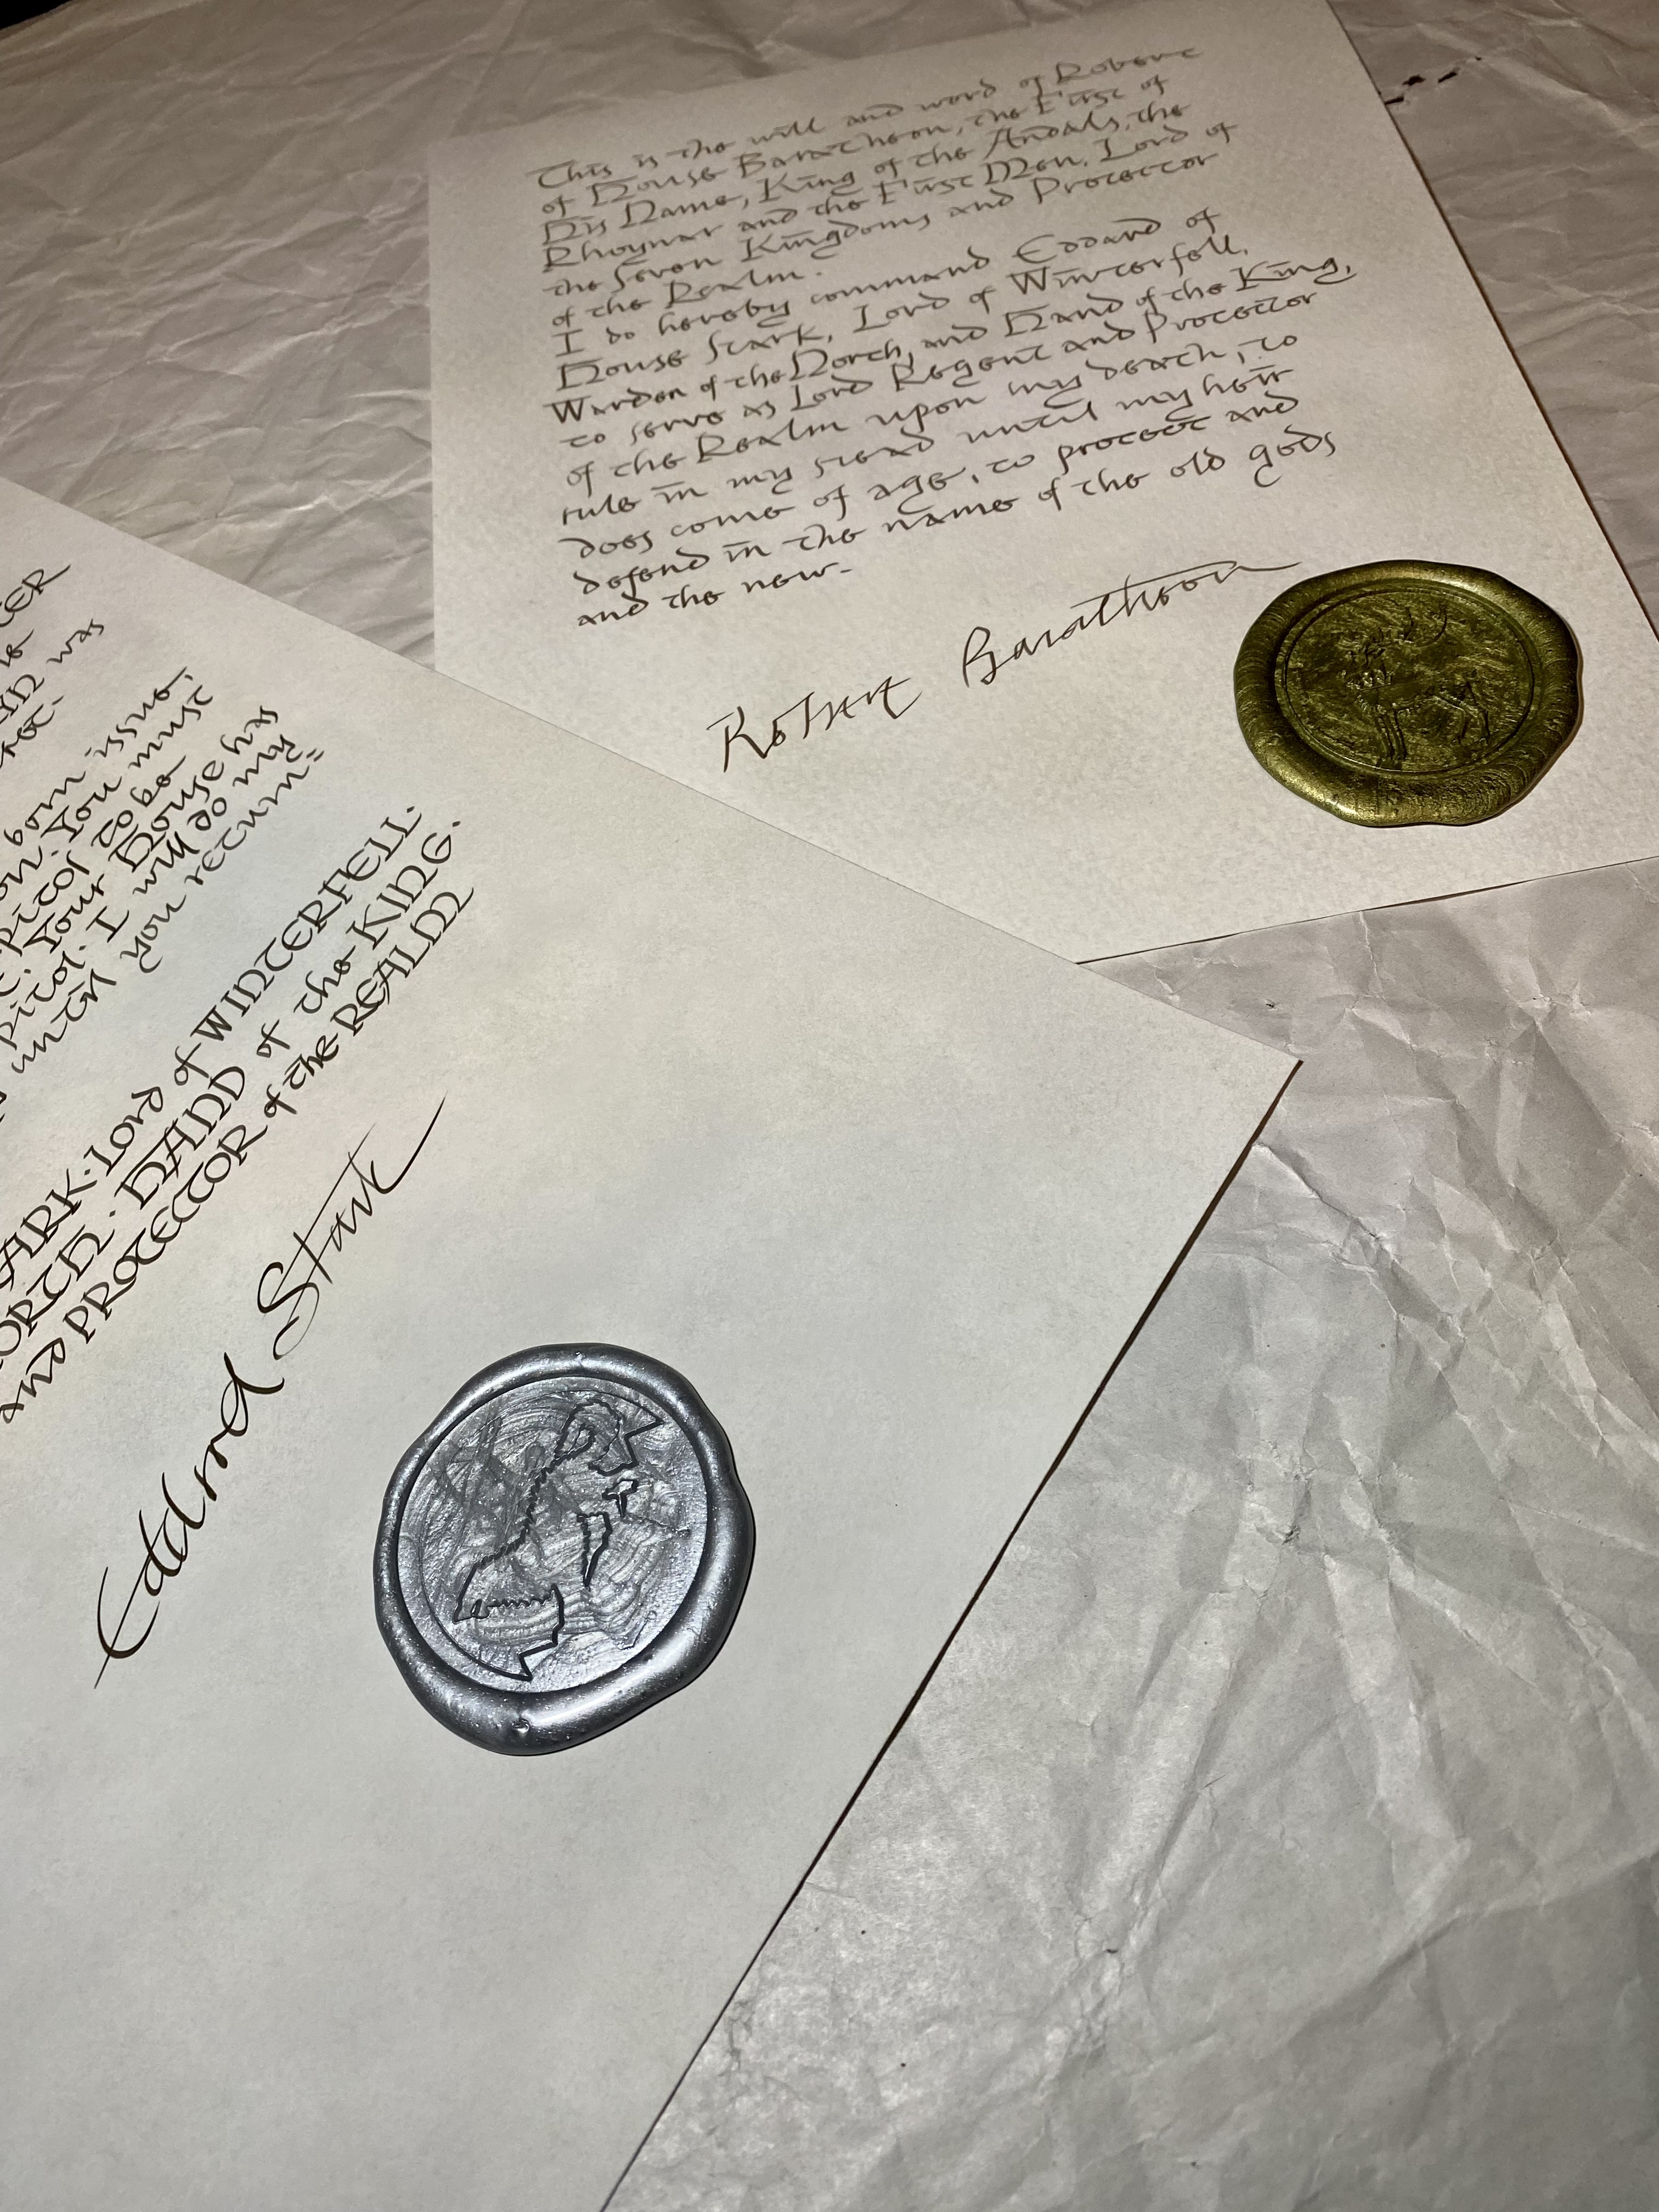 This is the will and word of Robert
of House Baratheon, the First of
His Name, King of the Andals, the
Rhoynar and the First Men, Lord of
the Seven Kingdoms and Protector
of the Realm.
I do hereby command Eddard of
House Stark, Lord of Winterfell,
Warden of the North, and Hand of the King,
to serve as Lord Regent and Protector
of the Realm upon my death, to
rule in my stead until my heir
does come of age, to protect and
defend in the name of the old gods
and the new.
Robert Baratheon
was
born issue.
You must
to be
Your House has
I will do my
until you return"
ARK. Lord of WINTERFELL.
HAND of the KING.
and PROTECTOR of the REALM
Eddard Stark